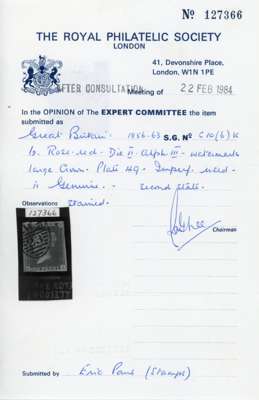 Nº 127366
THE ROYAL PHILATELIC SOCIETY
LONDON
41, Devonshire Place,
London, W1N 1PE
AFTER CONSULTATION
Meeting of 22 FEB 1984
In the OPINION of The EXPERT COMMITTEE the item
submitted as
Great Britain - 1856-63 S.G. Nº C10(b)
1d. Rose-red - Die II - Alph III - watermark
large Crown - Plate 49 - Imperf. used -
is Genuine - second state -
Observations
127366
stained -
Chairman
Submitted by Eric Paul (Stamps)